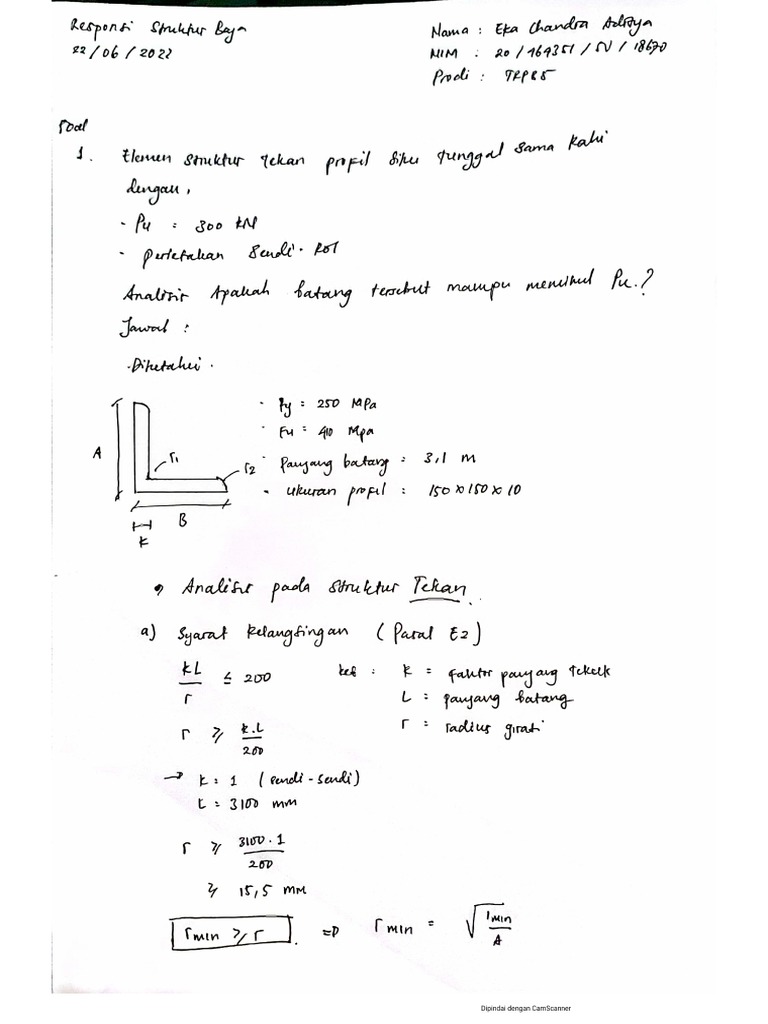 Responsi Struktur Baja
22/06/2022
Nama : Eka Chandra Aditya
NIM : 20/464351/SV/18670
Prodi : TRPBS
Soal
1. Elemen struktur tekan profil siku tunggal sama kaki
dengan,
- Pu : 300 kN
- perletakan Sendi - Rol
Analisis Apakah batang tersebut mampu memikul Pu.?
Jawab :
- Diketahui.
A
r1
r2
B
t
- Fy : 250 MPa
- Fu : 410 Mpa
- Panjang batang : 3,1 m
- ukuran profil : 150 x 150 x 10
• Analisis pada struktur Tekan.
a) Syarat kelangsingan (Pasal E2)
kL/r ≤ 200
r ≥ k.L/200
ket : k = faktor panjang tekuk
L = panjang batang
r = radius girasi
→ k = 1 (sendi - sendi)
L = 3100 mm
r ≥ 3100.1/200
≥ 15,5 mm
rmin ≥ r. => rmin = √Imin/A
Dipindai dengan CamScanner